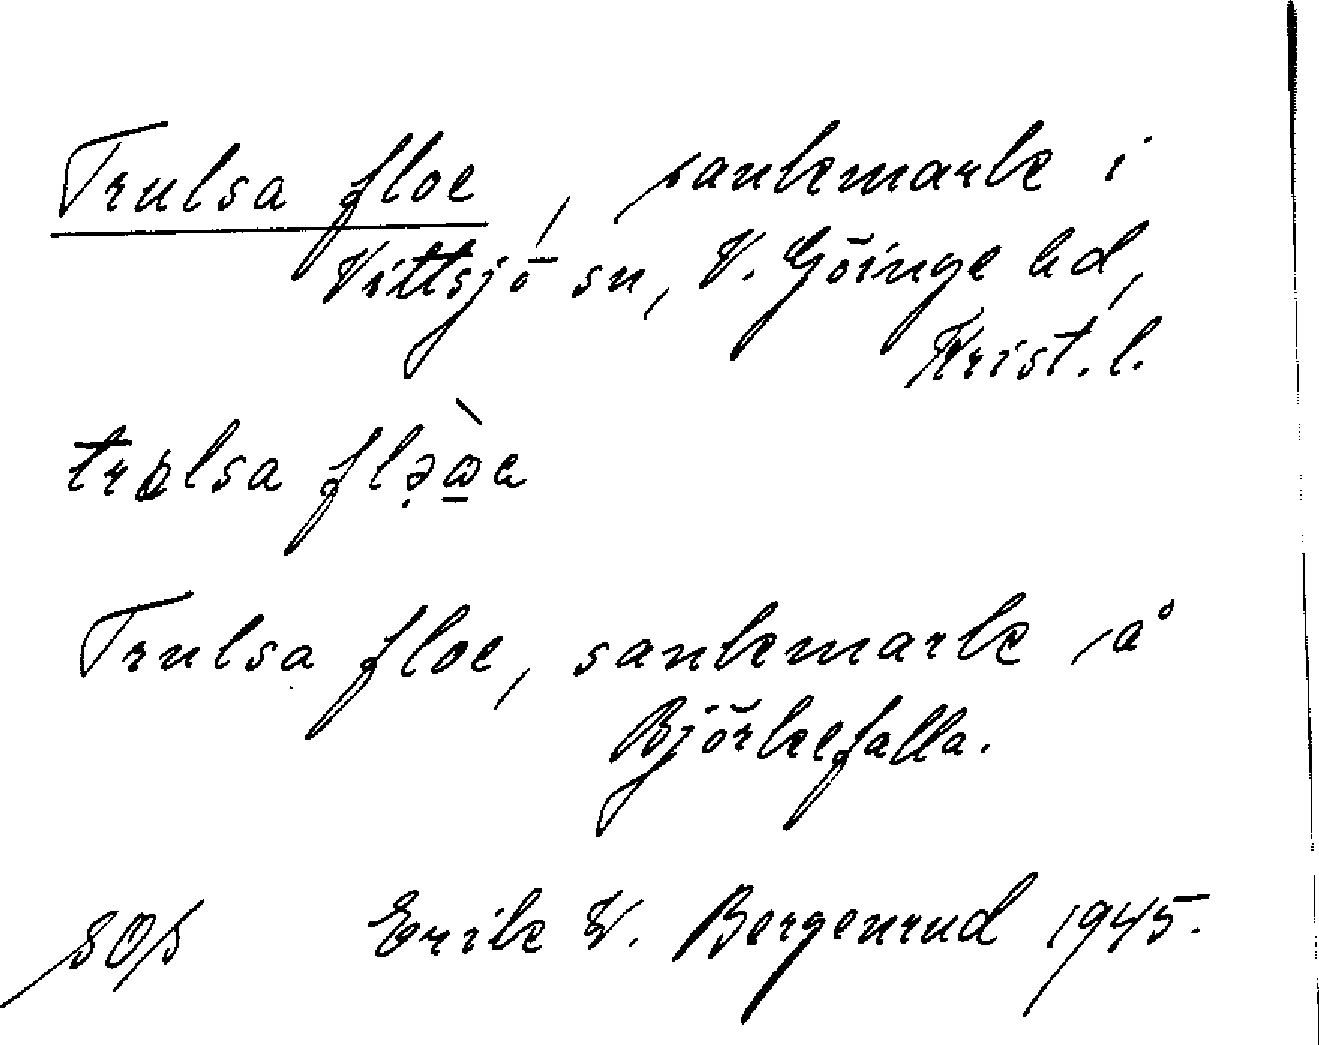 Trulsa floe, sankmark i
Vittsjö sn, V. Göinge hd,
Krist. l.
trɷlsa
Trulsa floe, sankmark å
Björkefalla.
Erik W. Bergenrud 1945.